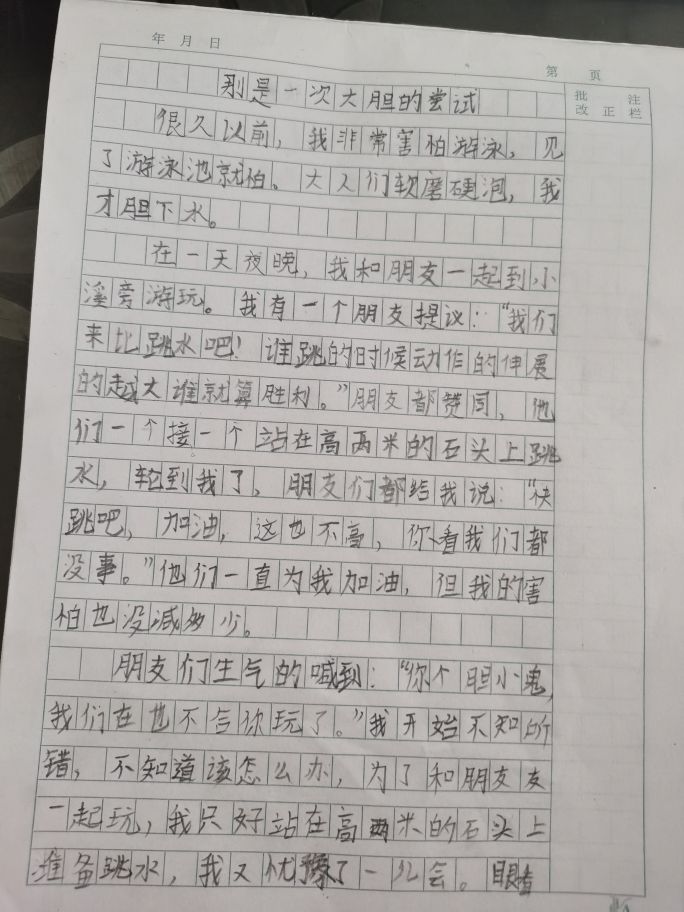 年 月 日
第 页
批 注
改 正 栏
别是一次大胆的尝试
很久以前，我非常害怕游泳，见
了游泳池就怕。大人们软磨硬泡，我
才胆下水。
在一天夜晚，我和朋友一起到小
溪旁游玩。我有一个朋友提议：“我们
来比跳水吧！谁跳的时候动作的伸展
的越大谁就算胜利。”朋友都赞同，他
们一个接一个站在高两米的石头上跳
水，轮到我了，朋友们都给我说：“快
跳吧，加油，这也不高，你看我们都
没事。”他们一直为我加油，但我的害
怕也没减多少。
朋友们生气的喊到：“你个胆小鬼，
我们在也不合你玩了。”我开始不知所
错，不知道该怎么办，为了和朋友友
一起玩，我只好站在高两米的石头上
准备跳水，我又忧豫了一儿会。眼看